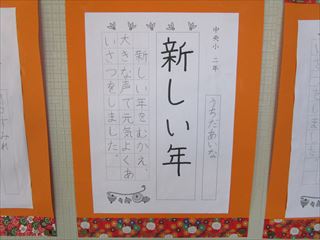 中央小 二年
うちだあいな
新しい年
新しい年をむかえ、
大きな声で元気よくあ
いさつをしました。
すみれ